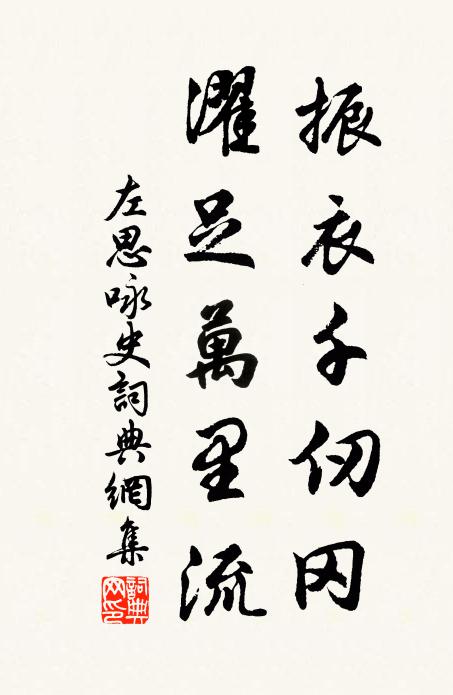 振衣千仞冈
濯足萬里流
左思咏史詞典網集
詞典網印